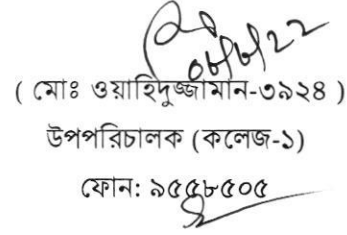 ( মোঃ ওয়াহিদুজ্জামান-৩৯২৪ )
উপপরিচালক (কলেজ-১)
ফোন: ৯৫৫৮৫০৫